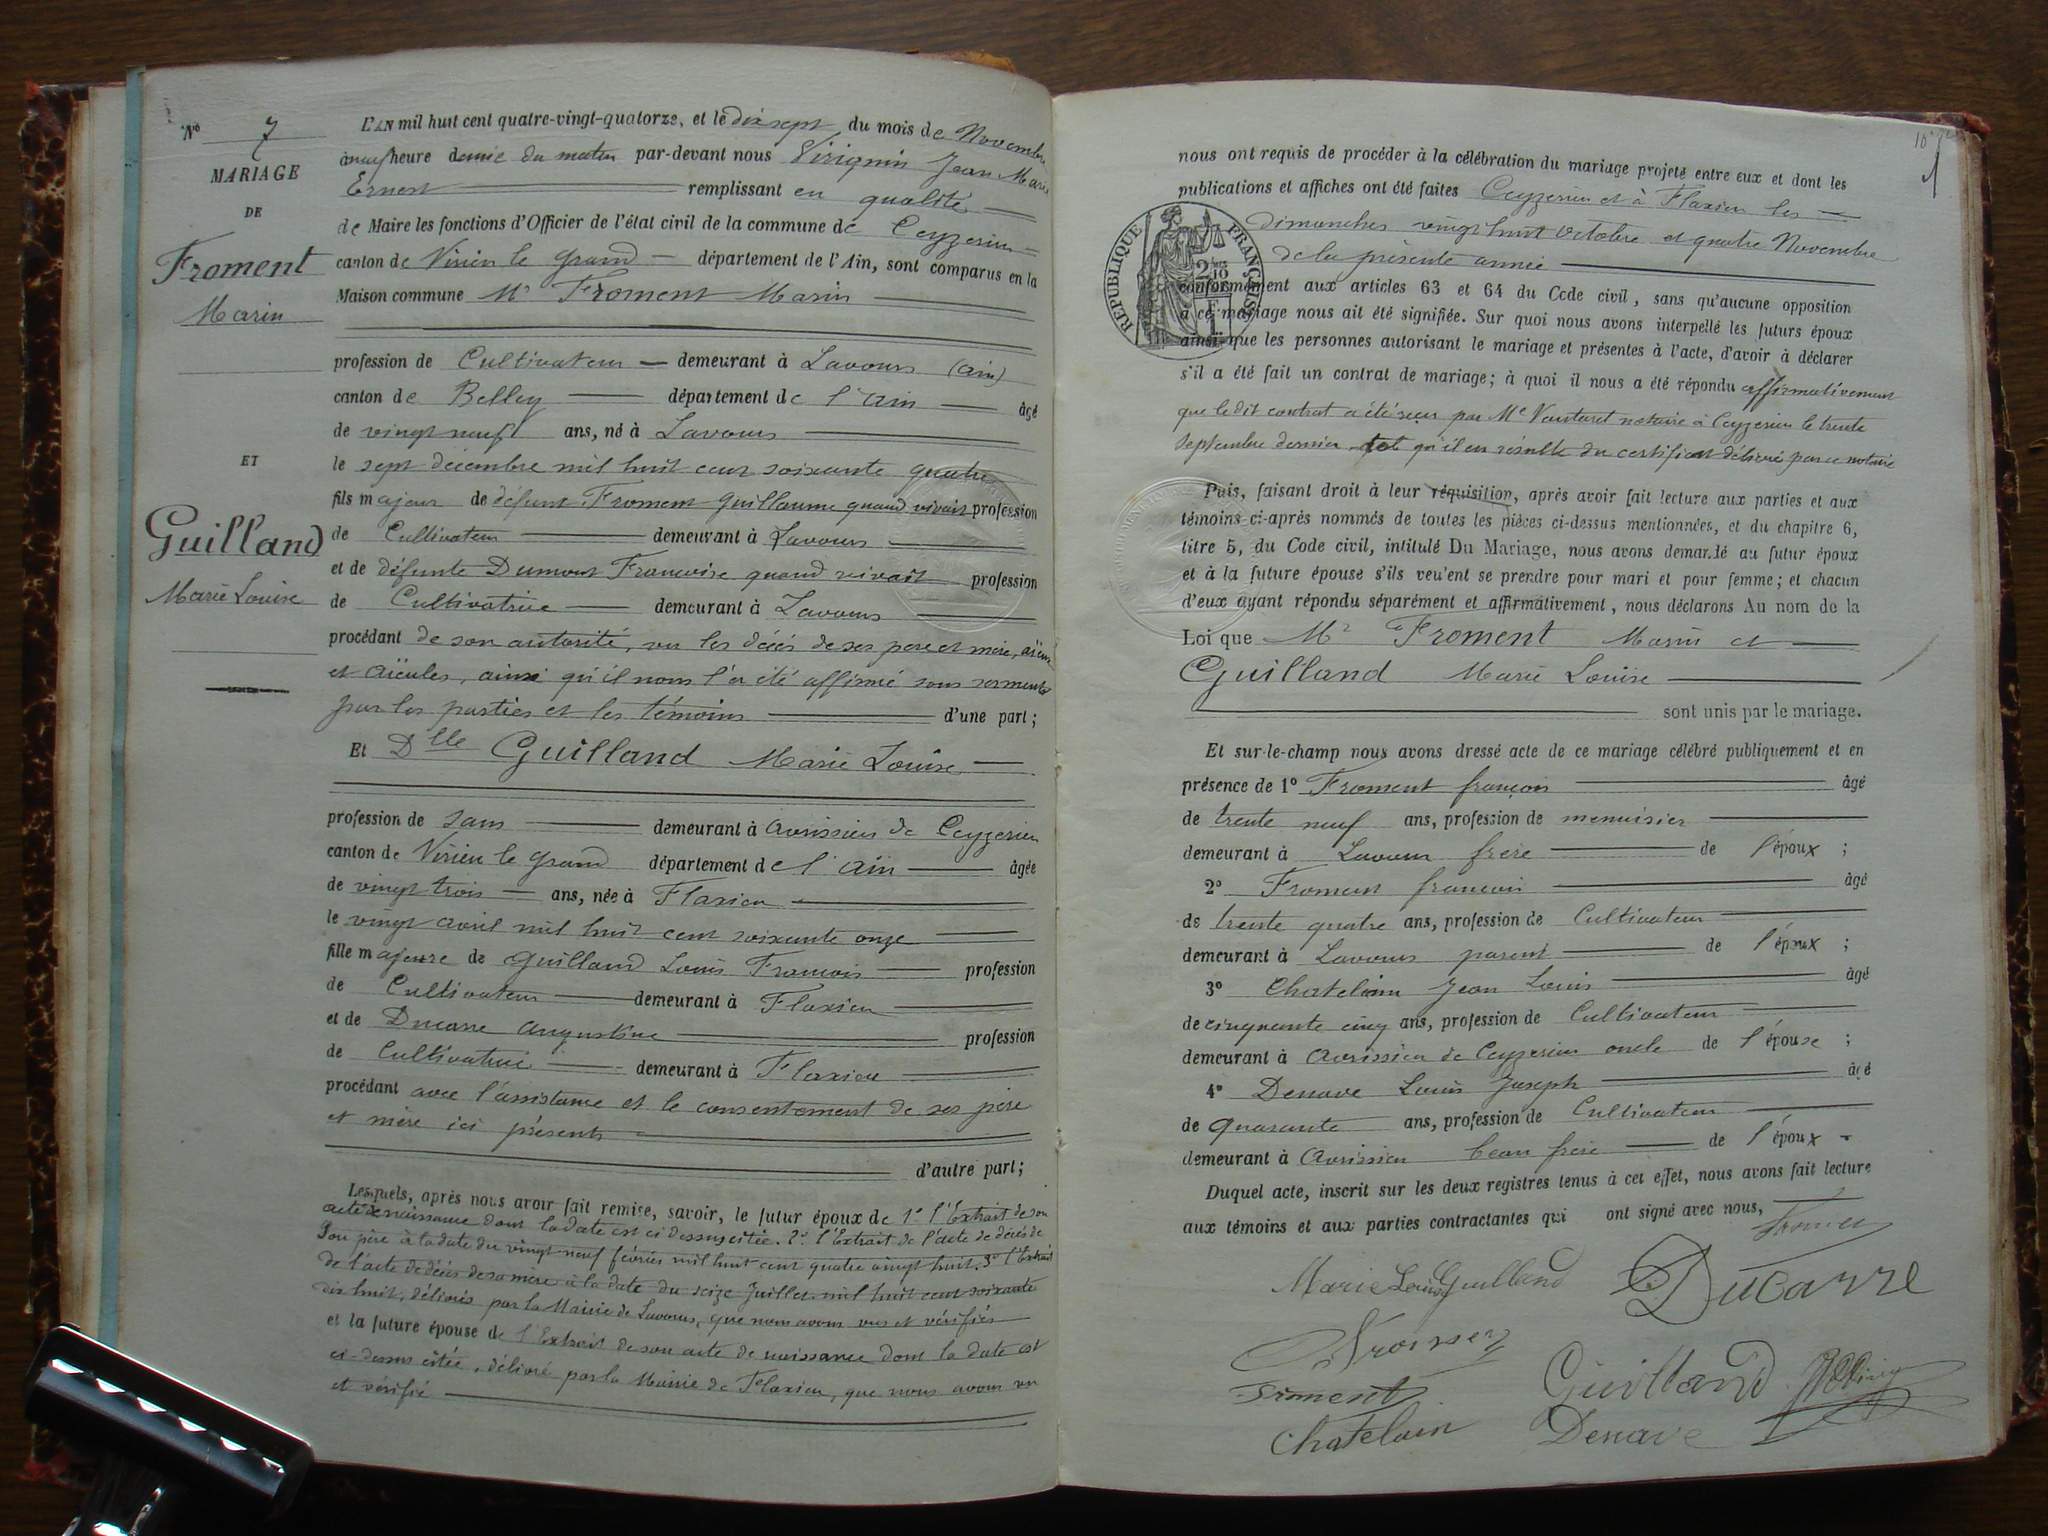 N° 7
MARIAGE
DE
Froment
Marin
ET
Guilland
Marie Louise
L'AN mil huit cent quatre-vingt-quatorze, et le dix sept du mois de Novembre
à neuf heure demie du matin par-devant nous Virignin Jean Marie
Ernest remplissant en qualité
de Maire les fonctions d'Officier de l'état civil de la commune de Ceyzerieu
canton de Virieu le Grand département de l'Ain, sont comparus en la
Maison commune Mr Froment Marin
profession de Cultivateur demeurant à Lavours (Ain)
canton de Belley département de l'Ain âgé
de vingt neuf ans, né à Lavours
le sept décembre mil huit cent soixante quatre
fils majeur de défunt Froment Guillaume quand vivait profession
de Cultivateur demeurant à Lavours
et de défunte Dumont Francoise quand vivait profession
de Cultivatrice demeurant à Lavours
procédant de son autorité, vu les décés de ses pere et mère, aïeux
et aïeules, ainsi qu'il nous l'a été affirmé sous serment
par les parties et les témoins d'une part;
Et Dlle Guilland Marie Louise
profession de sans demeurant à Avrissieu de Ceyzerieu
canton de Virieu le Grand département de l'Ain âgée
de vingt trois ans, née à Flaxieu
le vingt avril mil huit cent soixante onze
fille majeure de Guilland Louis Francois profession
de Cultivateur demeurant à Flaxieu
et de Ducarre Augustine profession
de Cultivatrice demeurant à Flaxieu
procédant avec l'assistance et le consentement de ses père
et mère ici présents
d'autre part;
Lesquels, après nous avoir fait remise, savoir, le futur époux de 1° l'Extrait de son
acte de naissance dont la date est ci dessus citée. 2° l'Extrait de l'acte de décés de
son père à la date du vingt neuf février mil huit cent quatre vingt huit. 3° l'Extrait
de l'acte de décés de sa mère à la date du seize Juillet mil huit cent soixante
dix huit, délivrés par la Mairie de Lavours, que nous avons vus et vérifiés
et la future épouse de l'Extrait de son acte de naissance dont la date est
ci-dessus citée, délivré par la Mairie de Flaxieu, que nous avons vu
et vérifié
nous ont requis de procéder à la célébration du mariage projeté entre eux et dont les
publications et affiches ont été faites Ceyzerieu et à Flaxieu les
dimanches vingt huit Octobre et quatre Novembre
de la présente année
RÉPUBLIQUE FRANÇAISE
conformément aux articles 63 et 64 du Code civil, sans qu'aucune opposition
à ce mariage nous ait été signifiée. Sur quoi nous avons interpellé les futurs époux
ainsi que les personnes autorisant le mariage et présentes à l'acte, d'avoir à déclarer
s'il a été fait un contrat de mariage; à quoi il nous a été répondu affirmativement
que le dit contrat a été reçu par Me notaire à Ceyzerieu le trente
septembre dernier qu'il en résulte du certificat délivré par ce notaire
Puis, faisant droit à leur réquisition, après avoir fait lecture aux parties et aux
témoins ci-après nommés de toutes les pièces ci-dessus mentionnées, et du chapitre 6,
titre 5, du Code civil, intitulé Du Mariage, nous avons demandé au futur époux
et à la future épouse s'ils veulent se prendre pour mari et pour femme; et chacun
d'eux ayant répondu séparément et affirmativement, nous déclarons Au nom de la
Loi que Mr Froment Marin et
Guilland Marie Louise
sont unis par le mariage.
Et sur-le-champ nous avons dressé acte de ce mariage célébré publiquement et en
présence de 1° Froment françois âgé
de trente neuf ans, profession de menuisier
demeurant à Lavours frere de l'époux ;
2° Froment francois âgé
de trente quatre ans, profession de Cultivateur
demeurant à Lavours parent de l'époux ;
3° Chatelain Jean Louis âgé
de cinquante cinq ans, profession de Cultivateur
demeurant à Avrissieu de Ceyzerieu oncle de l'épouse ;
4° Denave Louis Joseph âgé
de quarante ans, profession de Cultivateur
demeurant à Avrissieu beau frere de l'époux
Duquel acte, inscrit sur les deux registres tenus à cet effet, nous avons fait lecture
aux témoins et aux parties contractantes qui ont signé avec nous,
Marie Louise Guilland Ducarre
Froment Guilland
Chatelain Denave